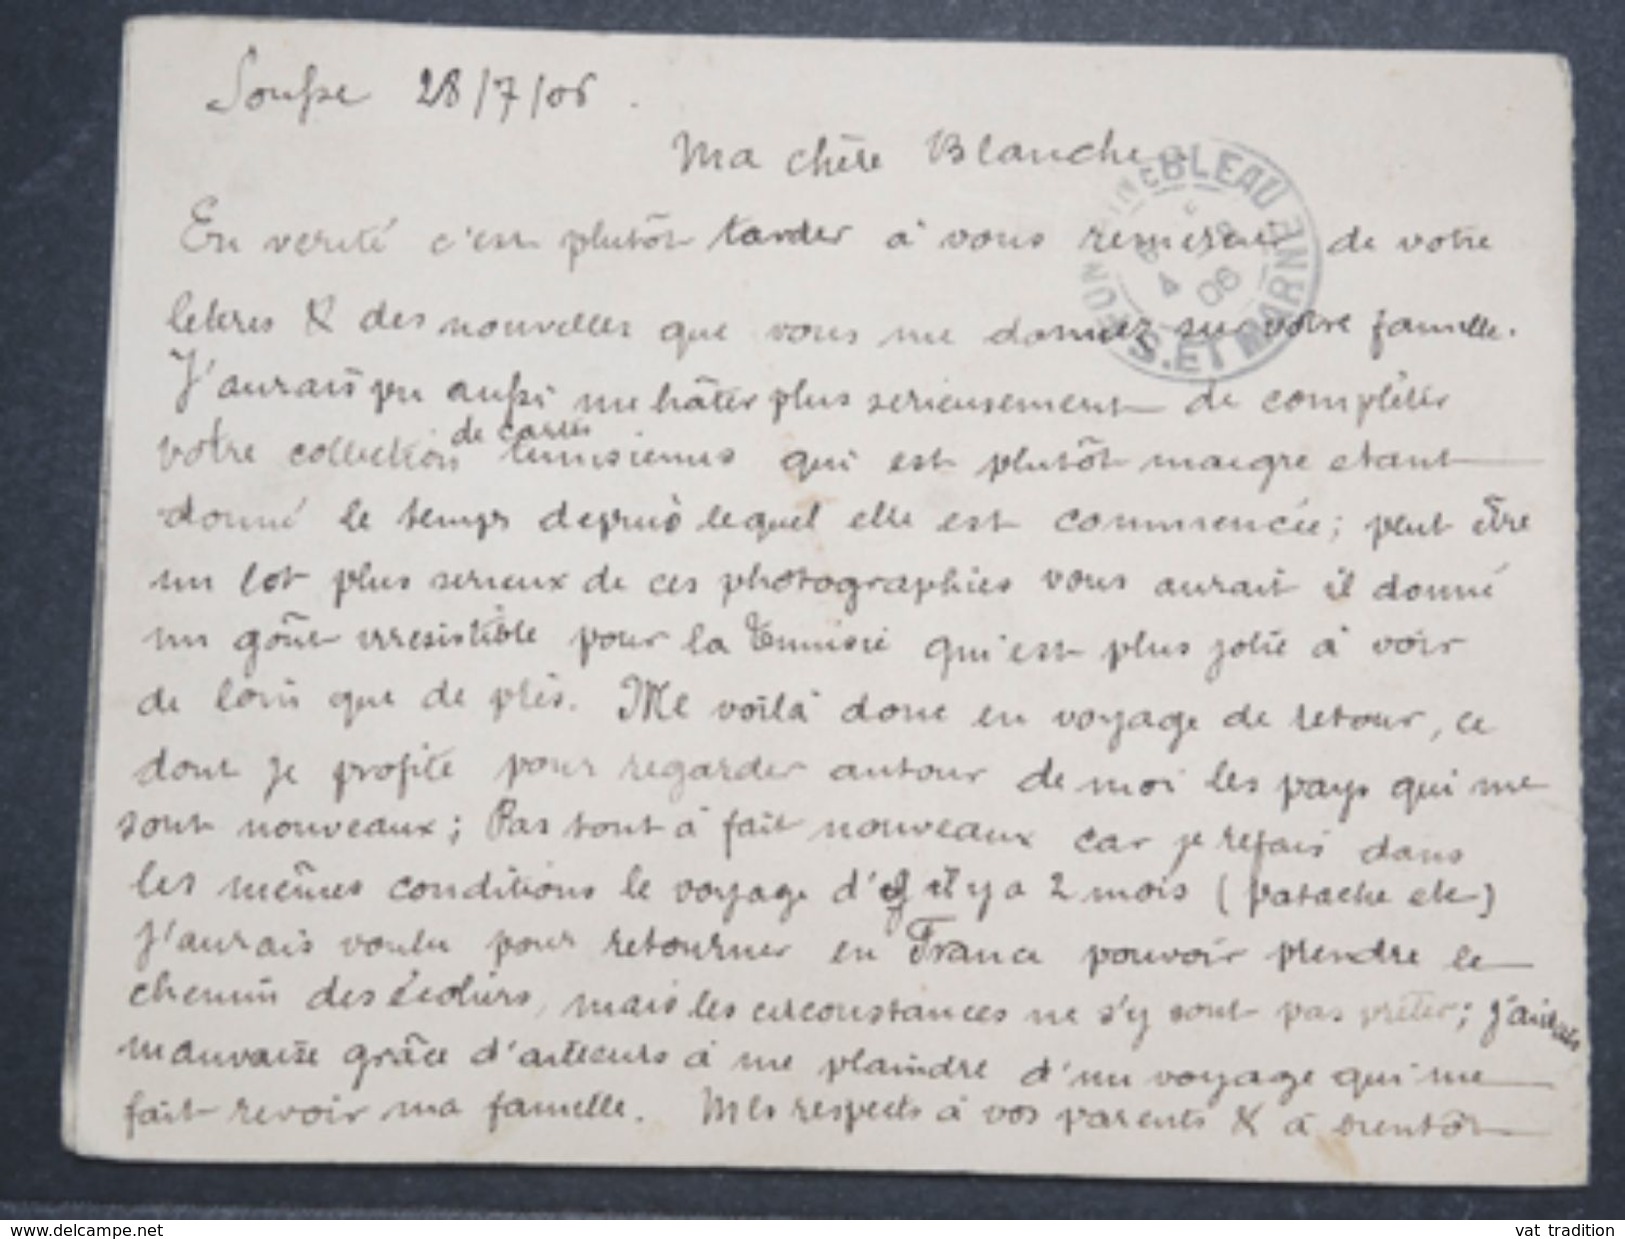 Sousse 28/7/06.
Ma chère Blanche.
En verité c'est plutôt tarder à vous remercier de votre
lettres & des nouvelles que vous me donnez sur votre famille.
J'aurais pu aussi me hâter plus serieusement de compléter
de cartes
votre collection tunisiennes qui est plutôt maigre etant
donné le temps depuis lequel elle est commencée; peut être
un lot plus serieux de ces photographies vous aurait il donné
un goût irresistible pour la Tunisie qui est plus jolie à voir
de loin que de près. Me voilà donc en voyage de retour, ce
dont je profite pour regarder autour de moi les pays qui me
sont nouveaux; Pas tout à fait nouveaux car je refais dans
les mêmes conditions le voyage d' il y a 2 mois (patache etc)
J'aurais voulu pour retourner en France pouvoir prendre le
chemin des écoliers, mais les circonstances ne s'y sont pas prêter; j'aurais
mauvaise grâce d'ailleurs à me plaindre d'un voyage qui me
fait revoir ma famille. Mes respects à vos parents & à bientôt
FONTAINEBLEAU
4 8
06
S. ET MARNE
delcampe.net
vat tradition